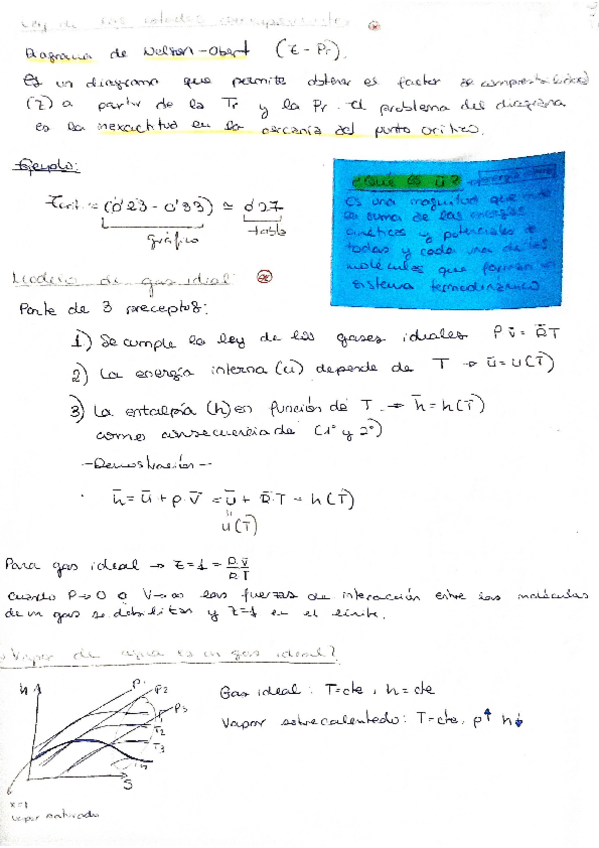 Ley de los estados correspondientes
Diagrama de Nelson-Obert (z - Pr).
Es un diagrama que permite obtener el factor de compresibilidad
(z) a partir de la Tr y la Pr. El problema del diagrama
es la inexactitud en la cercanía del punto crítico.
Ejemplo:
= (0'23 - 0'33) ≅ 0'27
gráfico
tabla
¿Qué es ū?
Es una magnitud que
la suma de las energías
cinéticas y potenciales de
todas y cada una de las
moléculas que forman un
sistema termodinámico
Modelo de gas ideal:
Parte de 3 preceptos:
1) Se cumple la ley de los gases ideales P v̄ = R̄T
2) La energía interna (u) depende de T → ū = u(T)
3) La entalpía (h) es función de T → h̄ = h(T)
como consecuencia de (1° y 2°)
-Demostración-
h̄ = ū + p·v̄ = ū + R̄·T = h(T)
u(T)
Para gas ideal → z=1 = P·v̄ / R·T
cuando P→0 o V→∞ las fuerzas de interacción entre las moléculas
de un gas se debilitan y z=1 en el límite.
¿Vapor de agua es un gas ideal?
h P1 P2 P3
T2
T3
S
x=1
vapor saturado
Gas ideal: T=cte, h=cte
Vapor sobrecalentado: T=cte, p↑ h↓